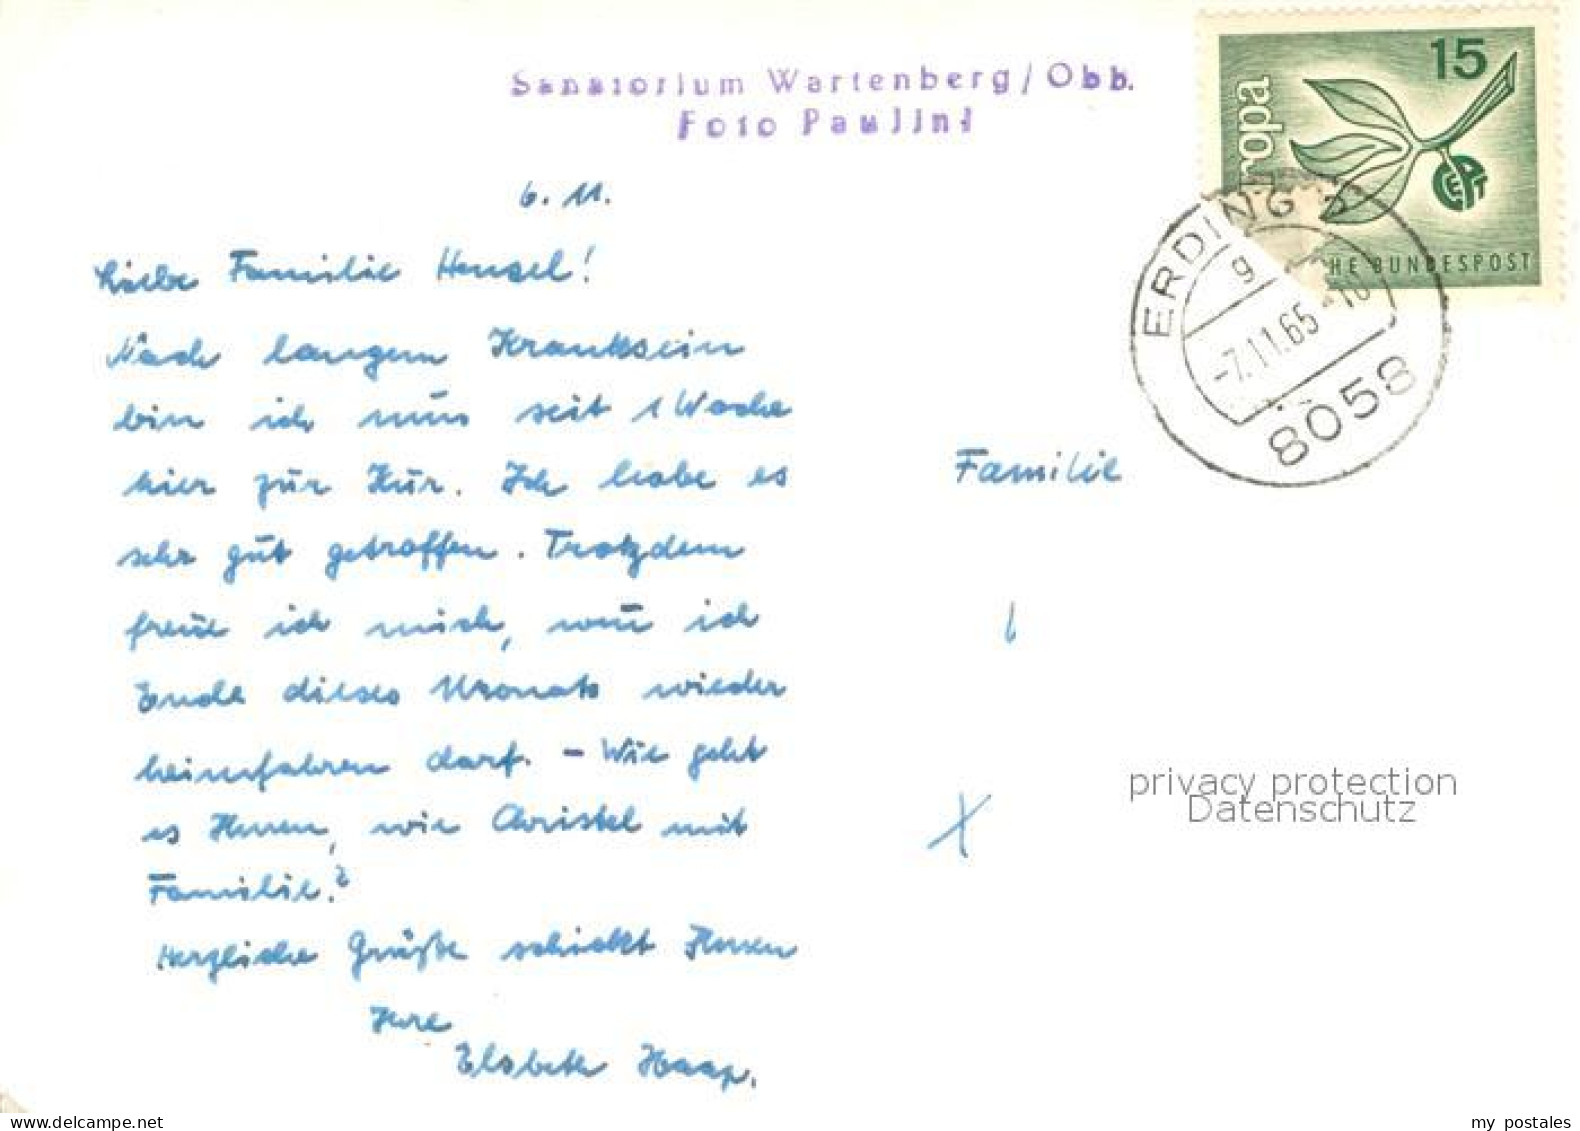 Sanatorium Wartenberg / Obb.
Foto Paulini
15
europa
CEPT
HE BUNDESPOST
ERDING 2
g
-7.11.65-18
8058
6. 11.
Liebe Familie Hensel!
Nach langem Kranksein
bin ich nun seit 1 Woche
hier zur Kur. Ich habe es
sehr gut getroffen. Trotzdem
freue ich mich, wenn ich
Ende dieses Monats wieder
heimfahren darf. - Wie geht
es Ihnen, wie Christel mit
Familie?
Herzliche Grüße schickt Ihnen
Ihre
Elsbeth Haap.
Familie
privacy protection
Datenschutz
www.delcampe.net
my postales